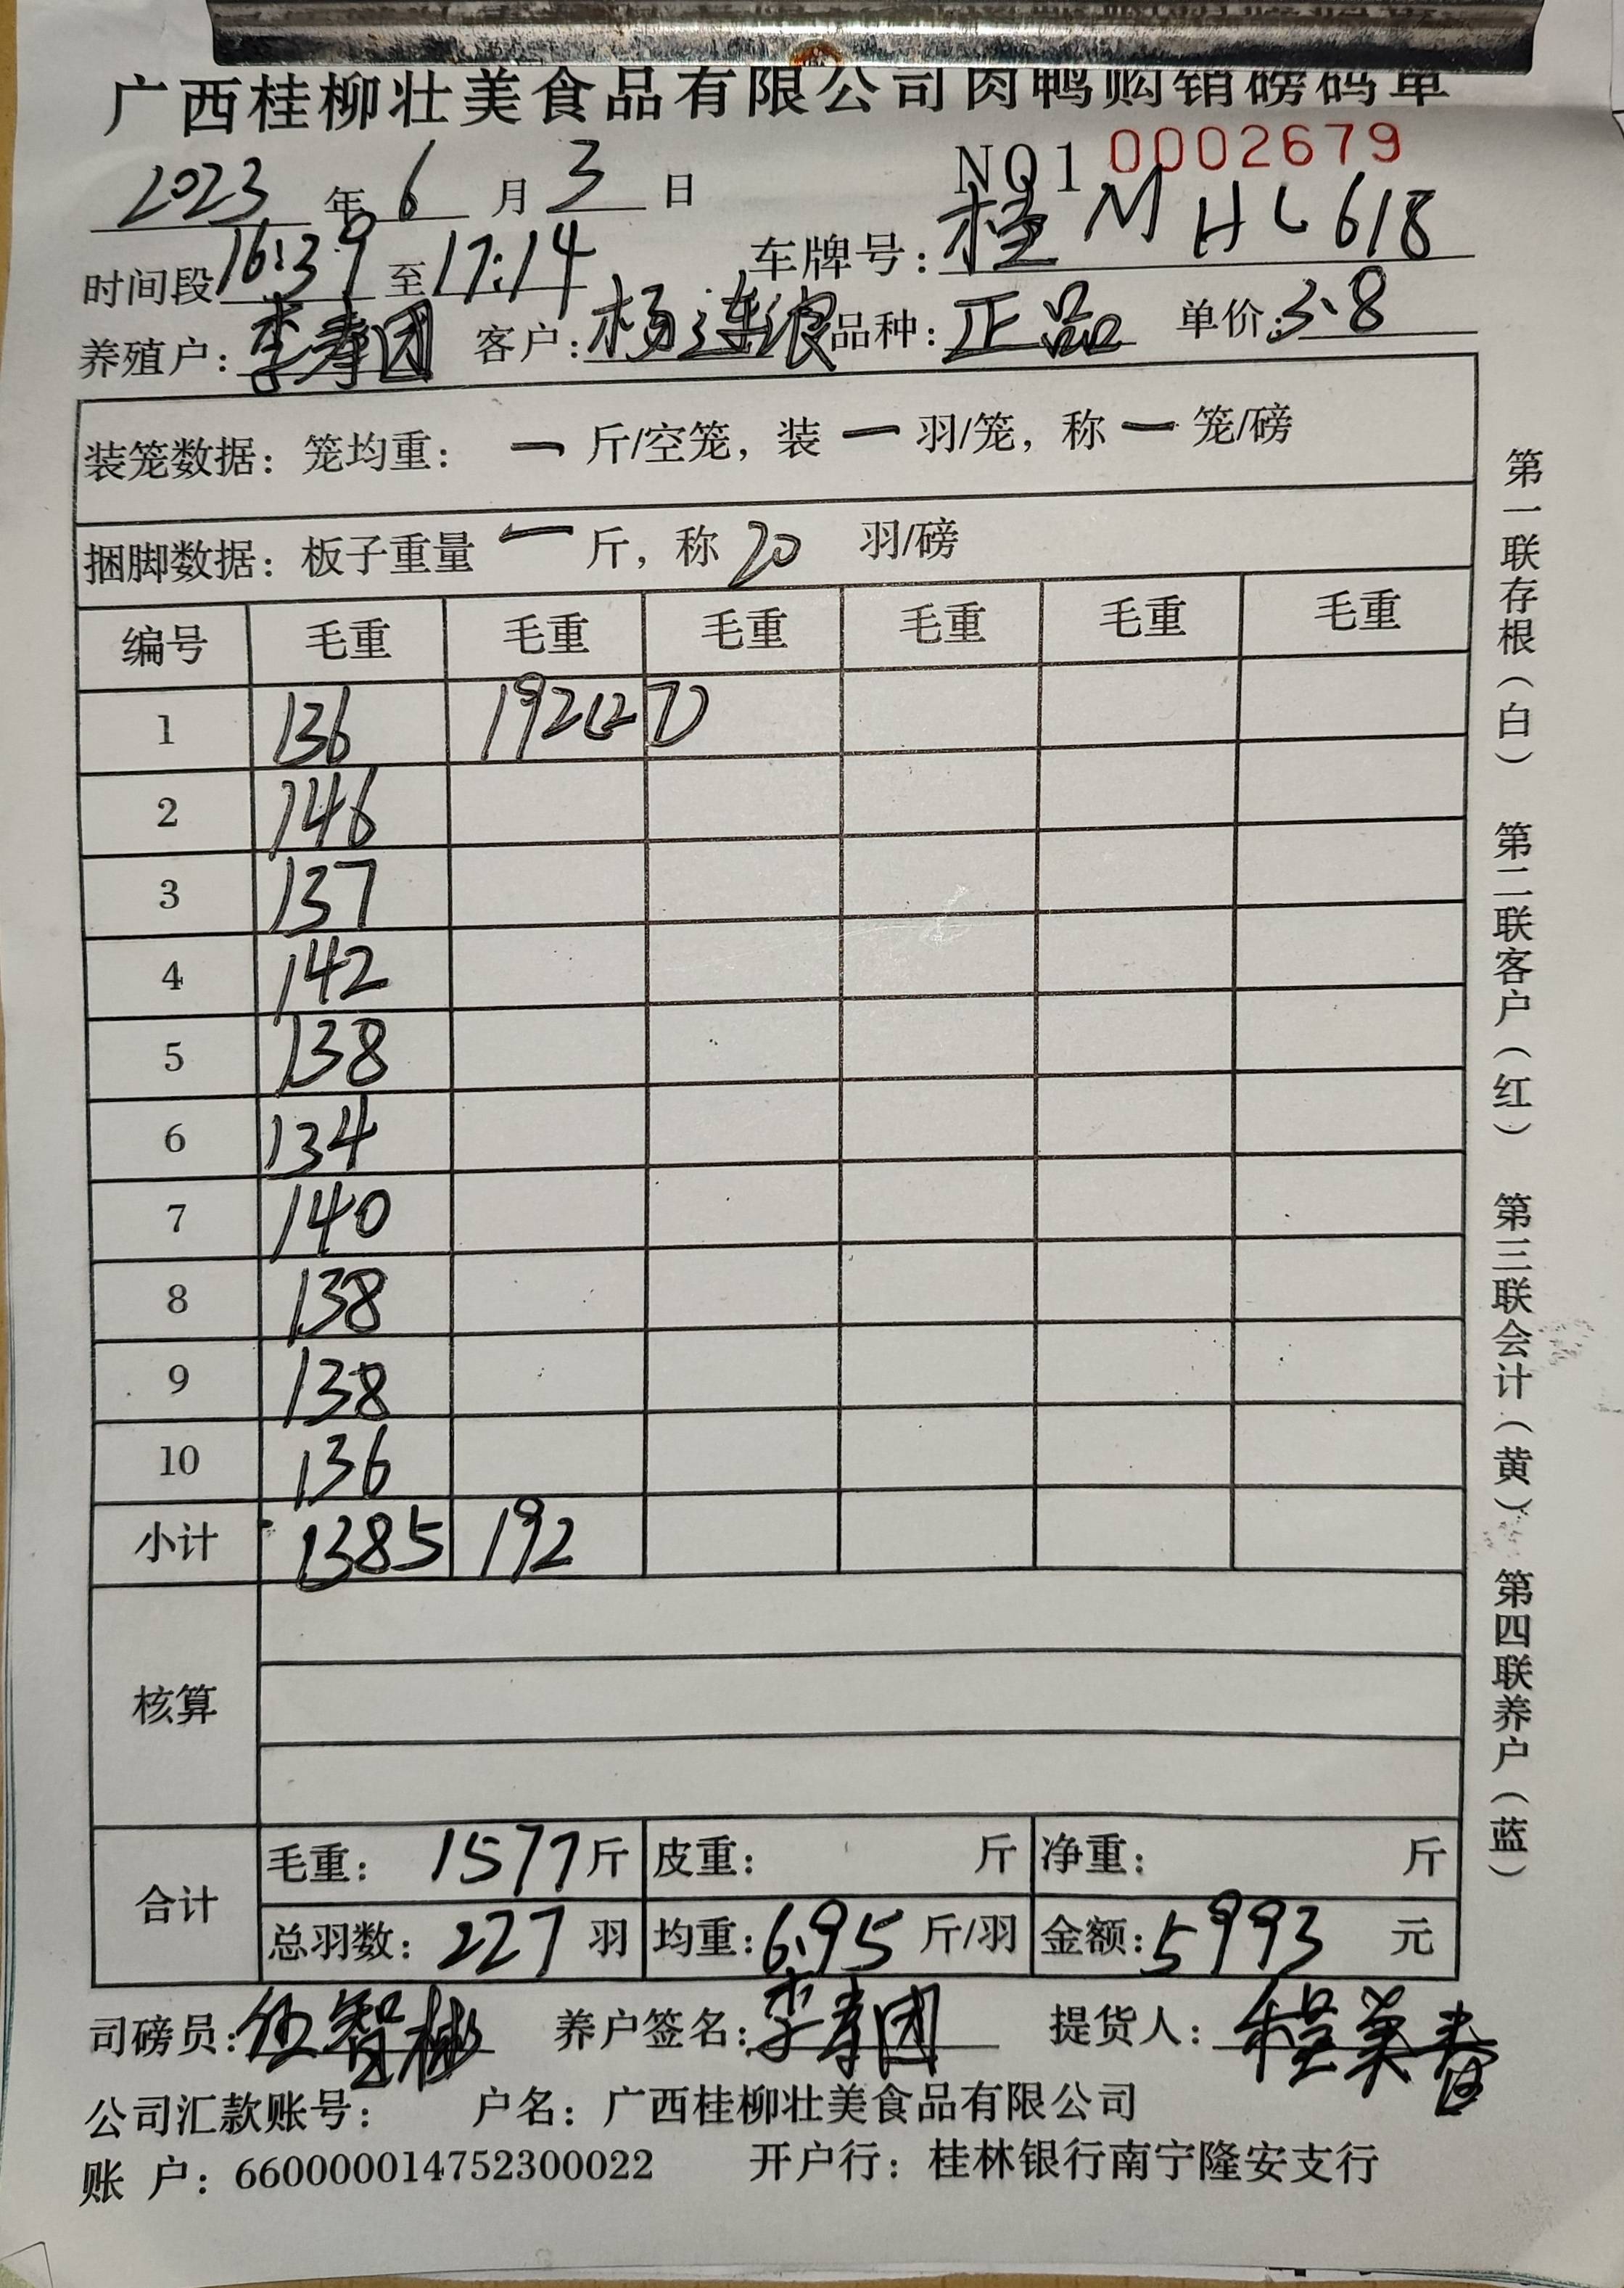 广西桂柳壮美食品有限公司肉鸭购销磅码单
2023 年 6 月 3 日 NO1 0002679
时间段 16:39 至 17:14 车牌号: 桂 M HL618
养殖户: 李寿团 客户: 杨连浪 品种: 正品 单价: 3.8
装笼数据: 笼均重: 一 斤/空笼, 装 一 羽/笼, 称 一 笼/磅
捆脚数据: 板子重量 一 斤, 称 20 羽/磅
编号 毛重 毛重 毛重 毛重 毛重 毛重
1 136 192(27)
2 146
3 137
4 142
5 138
6 134
7 140
8 138
9 138
10 136
小计 1385 192
核算
合计 毛重: 1577 斤 皮重: 斤 净重: 斤
总羽数: 227 羽 均重: 6.95 斤/羽 金额: 5993 元
司磅员: 伍智彬 养户签名: 李寿团 提货人: 程美春
公司汇款账号: 户名: 广西桂柳壮美食品有限公司
账 户: 660000014752300022 开户行: 桂林银行南宁隆安支行
第一联存根(白) 第二联客户(红) 第三联会计(黄) 第四联养户(蓝)